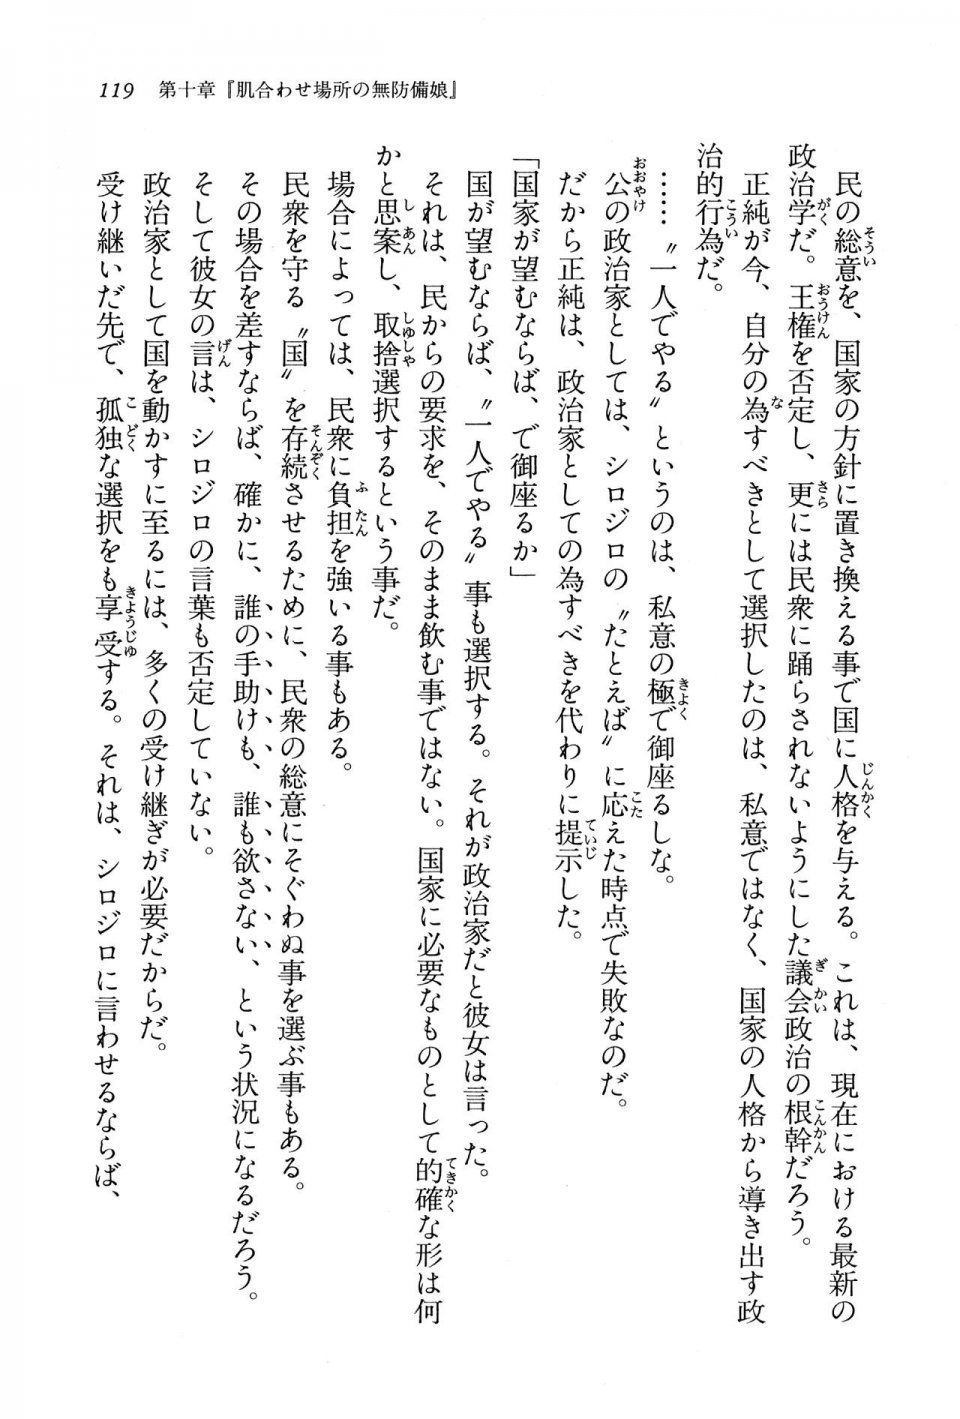 119　第十章『肌合わせ場所の無防備娘』
民の総意を、国家の方針に置き換える事で国に人格を与える。これは、現在における最新の
政治学だ。王権を否定し、更には民衆に踊らされないようにした議会政治の根幹だろう。
正純が今、自分の為すべきとして選択したのは、私意ではなく、国家の人格から導き出す政
治的行為だ。
……〝一人でやる〟というのは、私意の極で御座るしな。
公の政治家としては、シロジロの〝たとえば〟に応えた時点で失敗なのだ。
だから正純は、政治家としての為すべきを代わりに提示した。
「国家が望むならば、で御座るか」
国が望むならば、〝一人でやる〟事も選択する。それが政治家だと彼女は言った。
それは、民からの要求を、そのまま飲む事ではない。国家に必要なものとして的確な形は何
かと思案し、取捨選択するという事だ。
場合によっては、民衆に負担を強いる事もある。
民衆を守る〝国〟を存続させるために、民衆の総意にそぐわぬ事を選ぶ事もある。
その場合を差すならば、確かに、誰の手助けも、誰も欲さない、という状況になるだろう。
そして彼女の言は、シロジロの言葉も否定していない。
政治家として国を動かすに至るには、多くの受け継ぎが必要だからだ。
受け継いだ先で、孤独な選択をも享受する。それは、シロジロに言わせるならば、